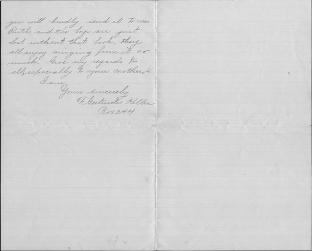 you will kindly send it to me
Ruth and the boys are quite
lost without that book, they
all enjoy singing from it so
much. Give my regards to
all, especially to your mother.
I am,
Yours sincerely,
Gertrude
Box 244